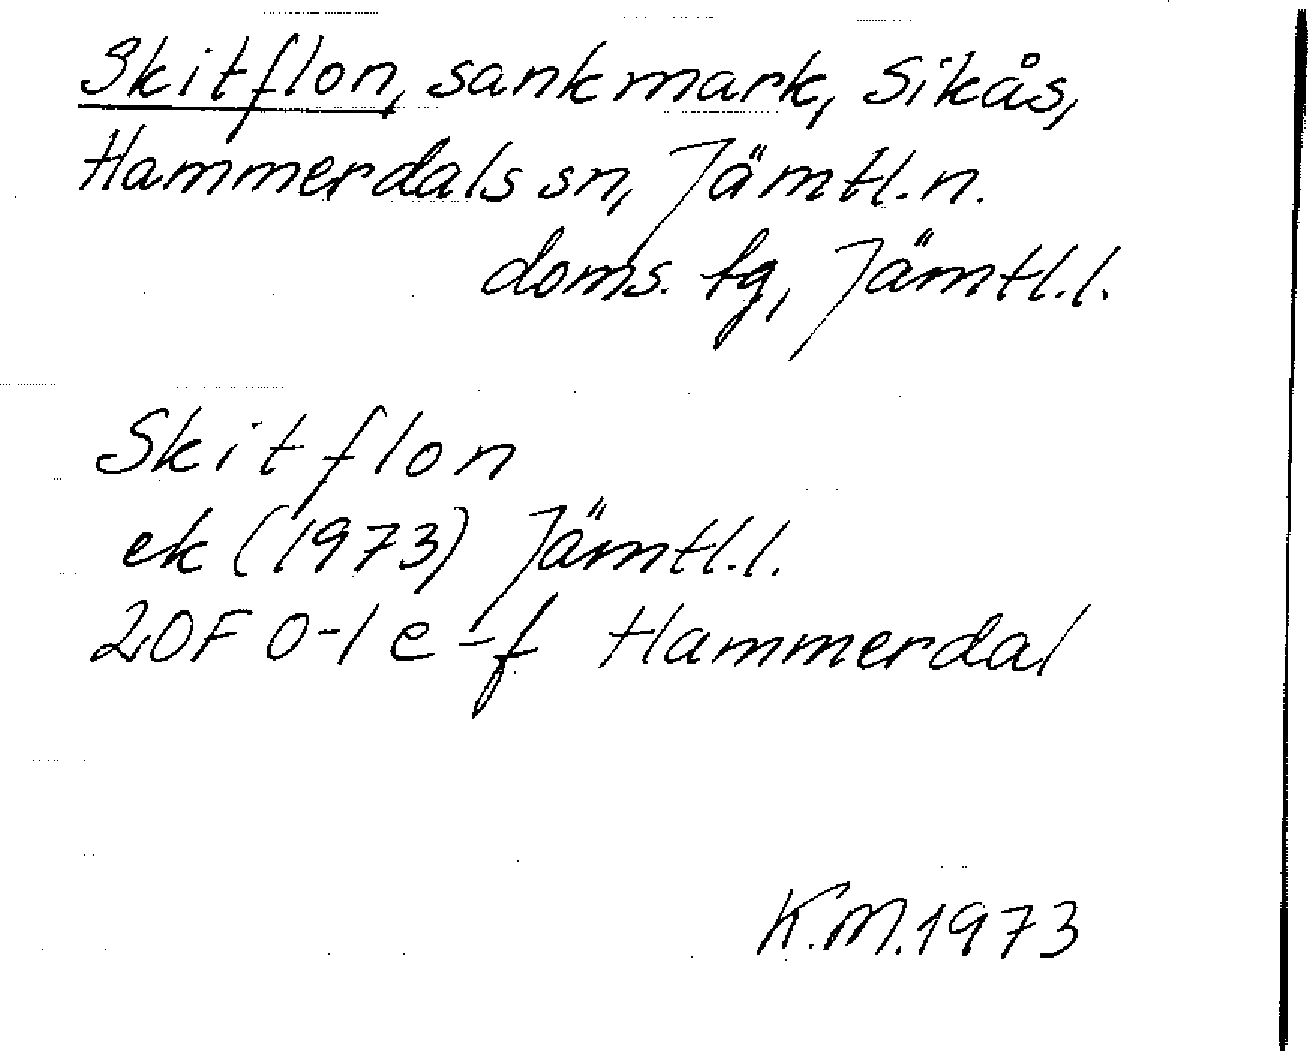 Skitflon, sankmark, Sikås,
Hammerdals sn, Jämtl.n.
doms. tg, Jämtl.l.
Skitflon
ek (1973) Jämtl.l.
20F 0-1 e-f Hammerdal
K.M. 1973